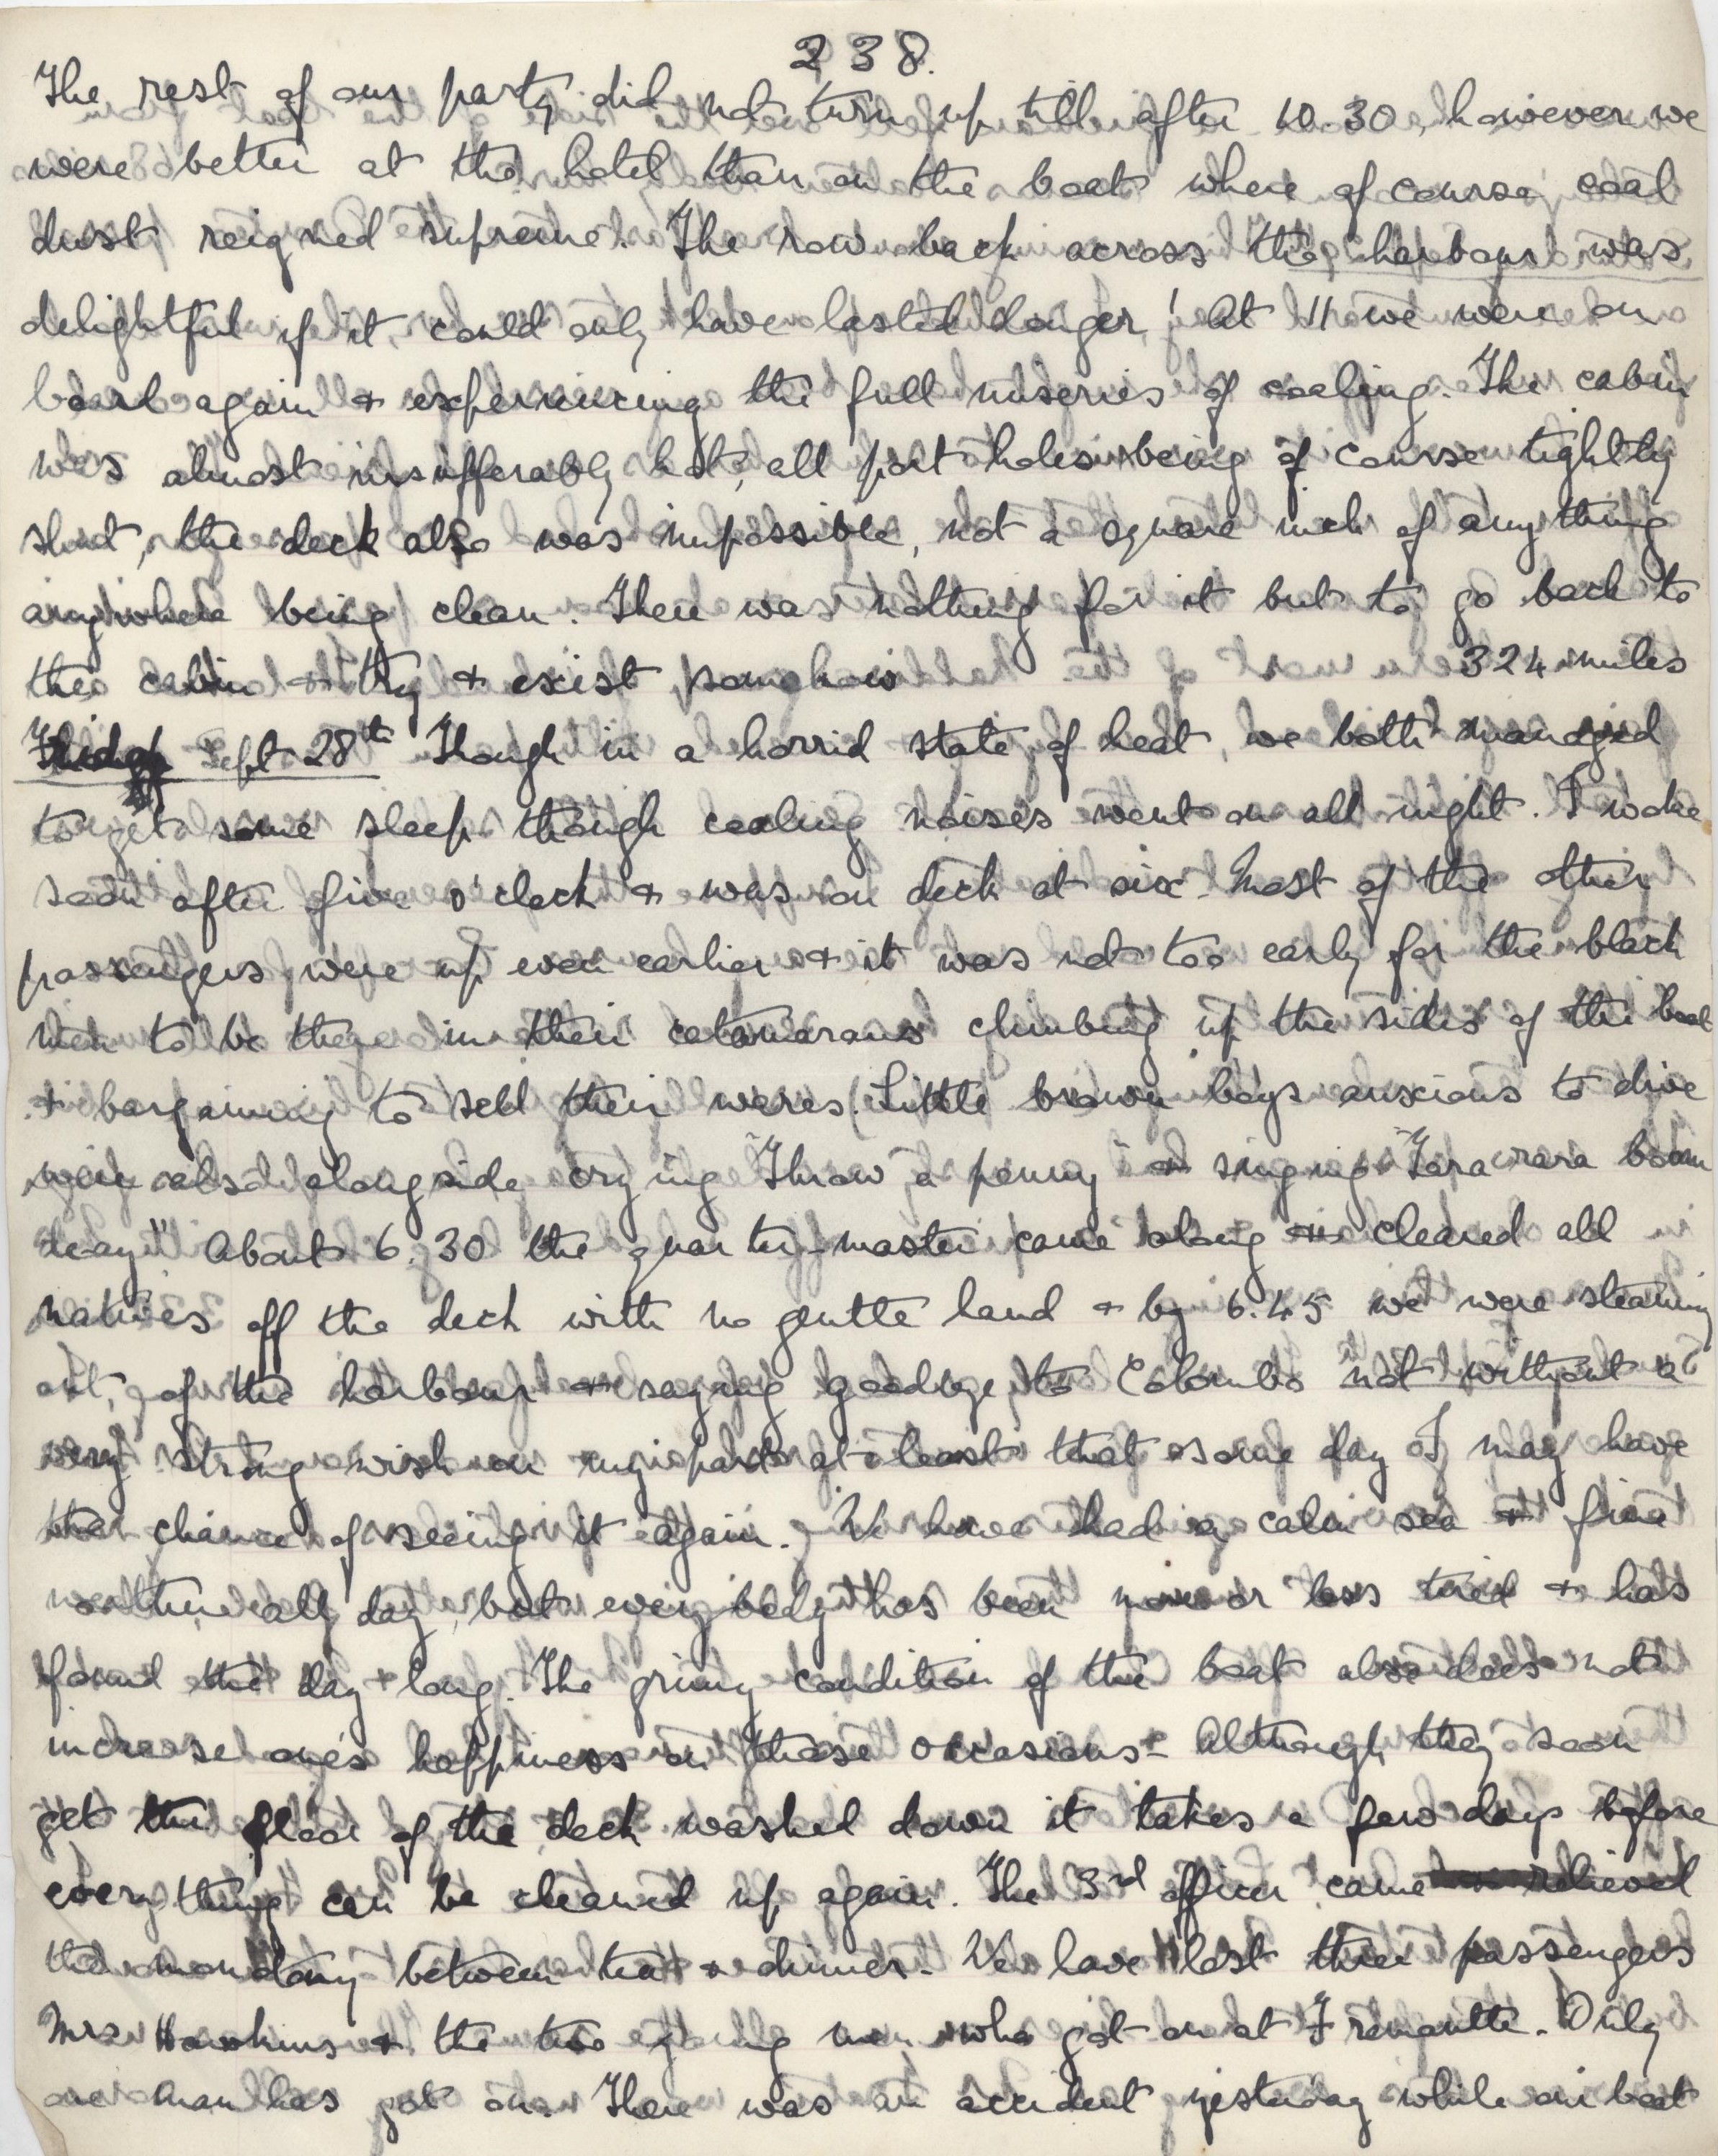 238.
The rest of our party did not turn up till after 10.30, however we
were better at the hotel than on the boat where of course coal
dust reigned supreme. The row back across the harbour was
delightful if it could only have lasted longer! At 11 we were on
board again + experiencing the full miseries of coaling. The cabin
was almost insufferably hot, all port holes being of course tightly
shut, the deck also was impossible, not a square inch of anything
anywhere being clean. There was nothing for it but to go back to
the cabin + try + exist somehow 324 miles
Friday Sept 28th Though in a horrid state of heat, we both managed
to get some sleep though coaling noises went on all night. I woke
soon after five o'clock + was on deck at six. Most of the other
passengers were up even earlier + it was not too early for the black
men to be there in their catamarans climbing up the sides of the boat
+ bargaining to sell their wares. Little brown boys anxious to dive
were also alongside crying "Throw a penny" + singing "Tara rara boom
deay" About 6.30 the quarter-master came along + cleared all
natives off the deck with no gentle hand + by 6.45 we were steaming
out of the harbour + saying goodbye to Colombo not without a
very strong wish on my part at least that some day I may have
the chance of seeing it again. We have had a calm sea + fine
weather all day, but everybody has been more or less tired + has
found the day long. The grimy condition of the boat also does not
increase one's happiness on these occasions - Although they soon
get the floor of the deck washed down it takes a few days before
everything can be cleaned up again. The 3rd officer came relieved
the monotony between tea + dinner. We have lost three passengers
Mrs Hawkins + the two young men who got on at Fremantle. Only
one man has got on. There was an accident yesterday while our boat